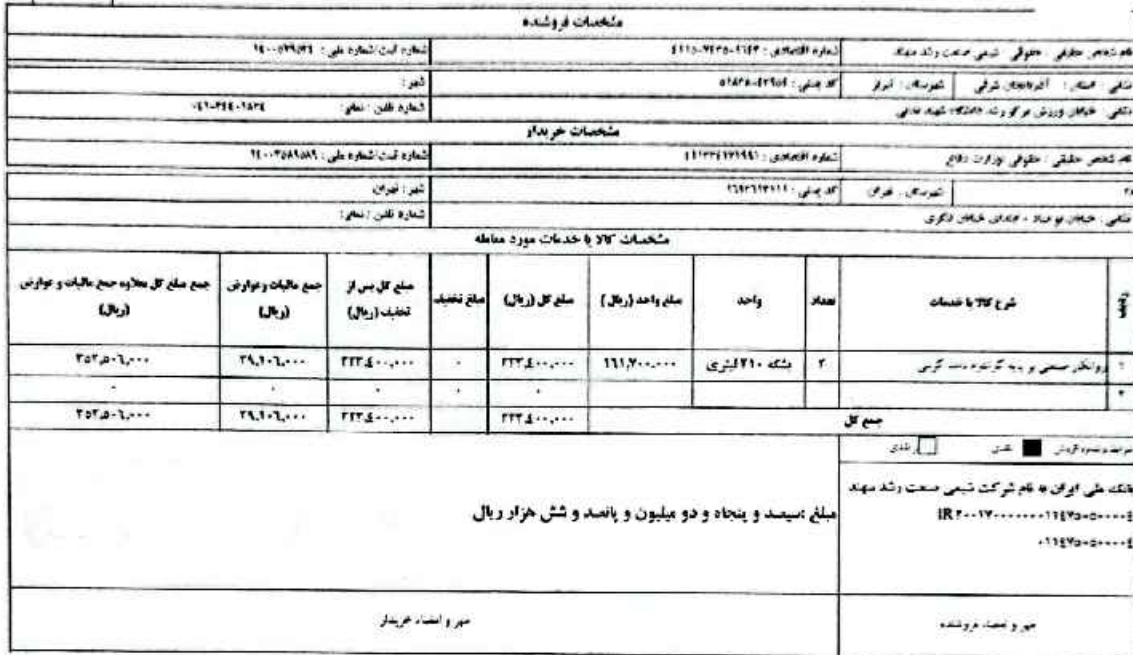 مشخصات فروشنده
نام شخص حقیقی / حقوقی : شیمی صنعت رشد سهند شماره اقتصادی : ۴۱۱۵-۷۴۳۵-۴۶۴۳ شماره ثبت/شماره ملی :
نشانی : استان : آذربایجان شرقی شهرستان : تبریز کد پستی : شهر :
نشانی : خیابان ورزش مرکز رشد دانشگاه شهید مدنی شماره تلفن / نمابر :
مشخصات خریدار
نام شخص حقیقی / حقوقی :وزارت دفاع شماره اقتصادی : شماره ثبت/شماره ملی : ۱۴۰۰۳۵۸۹۵۸۹
شهرستان : تهران کد پستی : شهر : تهران
نشانی : خیابان نو خیابان شماره تلفن / نمابر:
مشخصات کالا یا خدمات مورد معامله
ردیف شرح کالا یا خدمات تعداد واحد مبلغ واحد (ریال) مبلغ کل (ریال) مبلغ تخفیف مبلغ کل پس از تخفیف (ریال) جمع مالیات وعوارض (ریال) جمع مبلغ کل بعلاوه جمع مالیات و عوارض (ریال)
۱ روانکار صنعتی بر پایه ۲ بشکه ۲۱۰ لیتری ۱۶۱,۷۰۰,۰۰۰ ۳۲۳,۴۰۰,۰۰۰ ۰ ۳۲۳,۴۰۰,۰۰۰ ۲۹,۱۰۶,۰۰۰ ۳۵۲,۵۰۶,۰۰۰
۲ ۰ ۰ ۰ ۰ ۰
جمع کل ۳۲۳,۴۰۰,۰۰۰ ۳۲۳,۴۰۰,۰۰۰ ۲۹,۱۰۶,۰۰۰ ۳۵۲,۵۰۶,۰۰۰
شرایط و نحوه فروش نقدی
بانک ملی ایران به نام شرکت شیمی صنعت رشد سهند
مبلغ :سیصد و پنجاه و دو میلیون و پانصد و شش هزار ریال
مهر و امضاء فروشنده مهر و امضاء خریدار